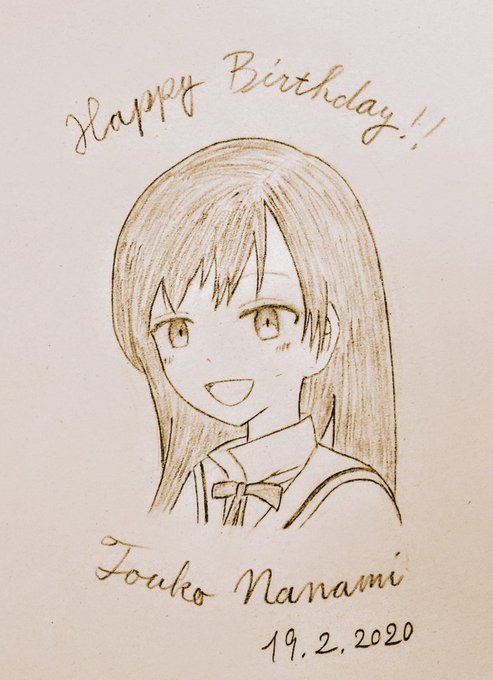 Happy Birthday!!
Touko Nanami
19.2.2020